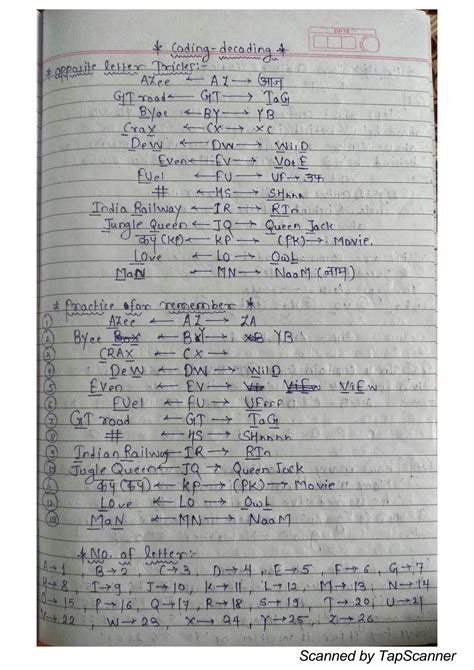 DATE
* Coding-decoding *
* Opposite letter Tricks:-
AZee ← AZ → आज
GT road ← GT → TaG
Byee ← BY → YB
Crax ← CX → XC
Dew ← DW → WilD
Even ← EV → VotE
FUel ← FU → UF → उफ
# ← HS → SHhhh
India Railway ← IR → RIn
Jungle Queen ← JQ → Queen Jack
कप (KP) ← KP → (PK) → Movie.
Love ← LO → OwL
MaN ← MN → NaaM (नाम)
* Practice for remember *
① AZee ← AZ → ZA
Byee ← BY → YB
③ CRAX ← CX →
④ DeW ← DW → WilD
⑤ Even ← EV → ViEw
⑥ FUel ← FU → UFFFF
⑦ GT road ← GT → TaG
⑧ # ← HS → SHhhhh
⑨ Indian Railway ← IR → RIn
Jugle Queen ← JQ → Queen Jack
⑪ ← KP → (PK) → Movie
⑫ LOve ← LO → OwL
⑬ MaN ← MN → NaaM
* No. of letter:-
A→1, B→2, C→3, D→4, E→5, F→6, G→7
H→8 I→9, J→10, K→11, L→12, M→13, N→14
O→15, P→16, Q→17, R→18, S→19, T→20, U→21
V→22, W→23, X→24, Y→25, Z→26
Scanned by TapScanner